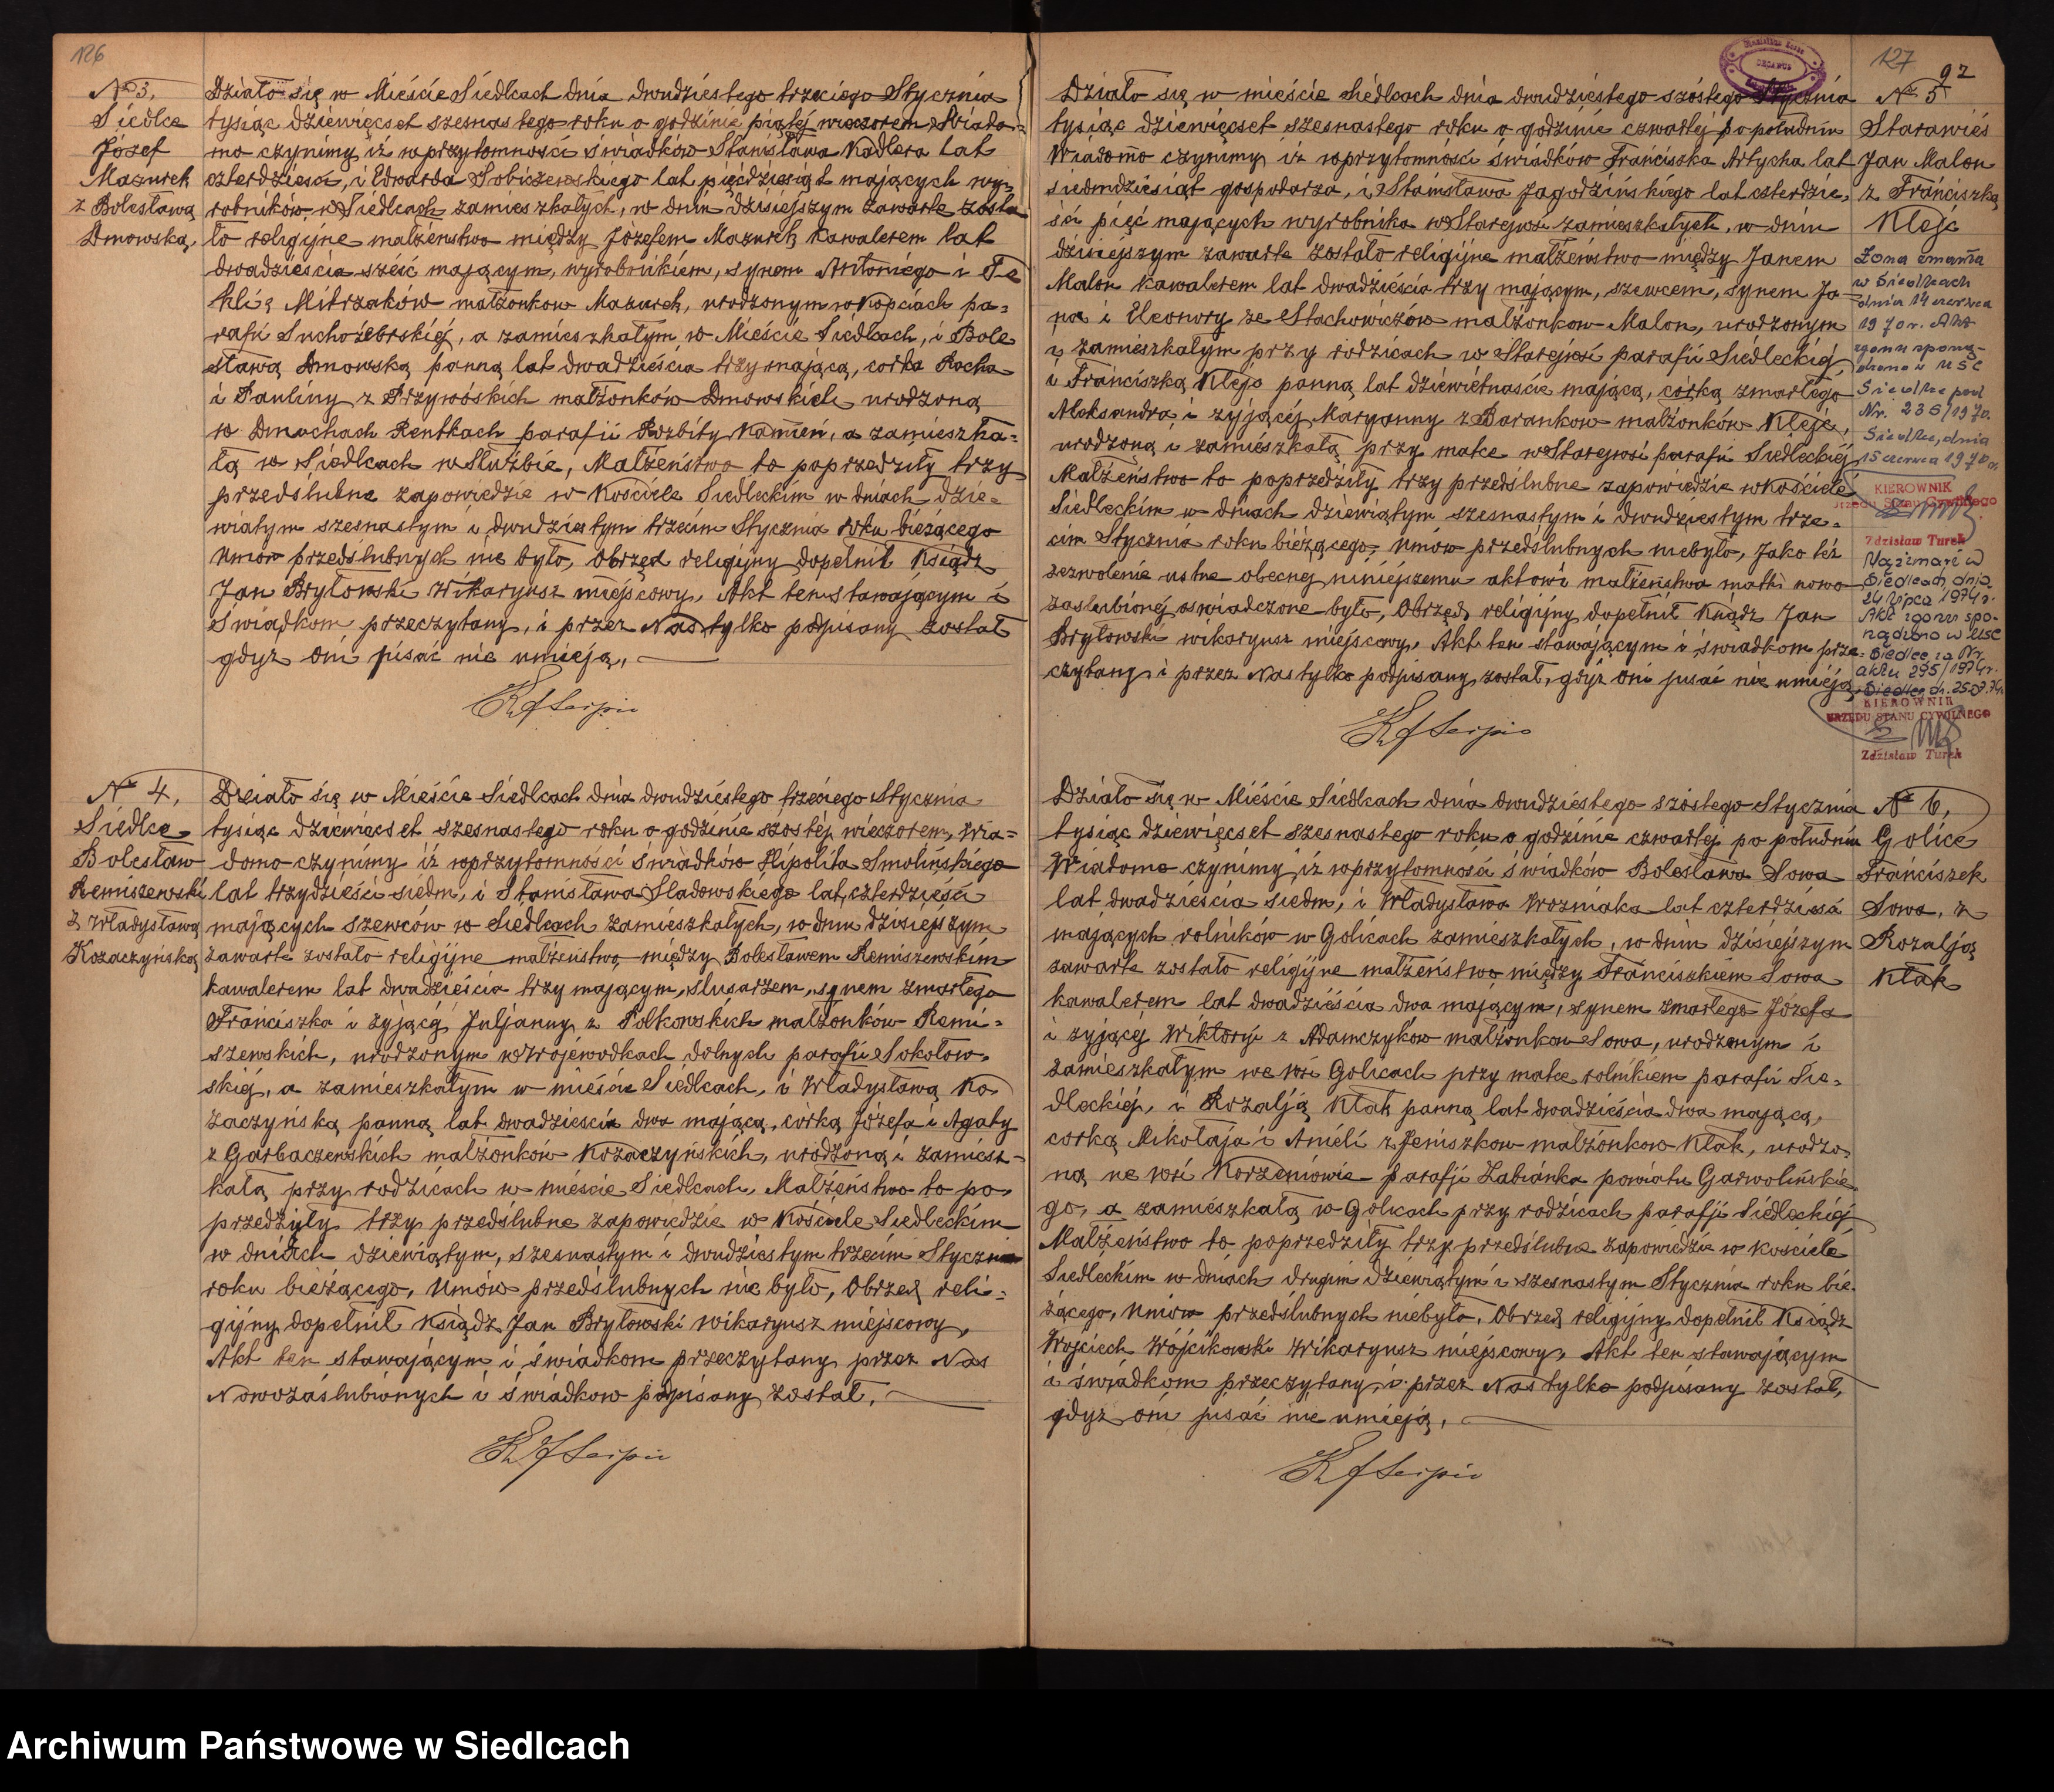 126
№ 3.
Siedlce
Józef
Mazurek
z Bolesławą
Dmowską.
Działo się w Mieście Siedlcach dnia dwudziestego trzeciego Stycznia
tysiąc dziewięcset szesnastego roku o godzinie piątej wieczorem Wiado=
mo czynimy iż wprzytomnosci świadków Stanisława Kadlera lat
czterdziesci, i Edwarda Sobiczewskiego lat pięcdziesiąt mających wy=
robników w Siedlcach zamieszkałych, w dniu dzisiejszym zawarte zosta
ło religijne małżeństwo między Józefem Mazurek kawalerem lat
dwadzieścia sześć mającym, wyrobnikiem, synem Antoniego i Te
klię Mitrzaków małżonkow Mazurek, urodzonym w Kopciach pa=
rafii Suchożebrskiéj, a zamieszkałym w Mieście Siedlcach, i Bole
sławą Dmowską panną lat dwadzieścia trzy mającą, corką Rocha
i Pauliny z Przywóskich małżonków Dmowskich urodzoną
w Dmochach Rentkach parafii Rozbity Kamień, a zamieszka=
łą w Siedlcach w Służbie, Małżeństwo to poprzedziły trzy
przedslubne zapowiedzie w Kosciele Siedleckim w dniach dzie=
wiątym szesnastym i dwudziestym trzecim Stycznia roku bieżącego
Umów przedślubnych nie było, Obrzęd religijny dopełnił Ksiądz
Jan Bryłowski Wikaryusz miejscowy, Akt ten stawającym i
Swiadkom przeczytany, i przez Nas tylko podpisany został
gdyz oni pisać nie umieją.
№ 4.
Siedlce
Bolesław
Remiszewski
z Władysławą
Kozaczyńską
Działo się w Mieście Siedlcach dnia dwudziestego trzeciego Stycznia
tysiąc dziewięcset szesnastego roku o godzinie szóstéj wieczorem, Wia=
domo czynimy iż wprzytomnosci świadków Hipolita Smolińskiego
lat trzydzieści siedm, i Stanisława Sladowskiego lat czterdzieści
mających szewców w Siedlcach zamieszkałych, w dniu dzisiejszym
zawarte zostało religijne małżeństwo między Bolesławem Remiszewskim
kawalerem lat dwadzieścia trzy mającym, slusarzem, synem zmarłego
Franciszka i żyjącéj Juljanny z Polkowskich małżonków Remi=
szewskich, urodzonym w Wojewodkach dolnych parafii Sokołow=
skiéj, a zamieszkałym w mieście Siedlcach, i Władysławą Ko
zaczyńską panną lat dwadziescia dwa mającą, córką Józefa i Agaty
z Garbaczewskich małżonków Kozaczyńskich, urodzoną i zamiesz=
kałą przy rodzicach w mieście Siedlcach, Małżeństwo to po=
przedziły trzy przedślubne zapowiedzie w Kościele Siedleckim
w dniach dziewiątym, szesnastym i dwudziestym trzecim Stycznia
roku bieżącego, Umów przedślubnych nie było, Obrzęd reli=
gijny dopełnił Ksiądz Jan Bryłowski wikaryusz miejscowy,
Akt ten stawającym i świadkom przeczytany przez Nas
Nowozaślubionych i świadkow podpisany został.
127
92
№ 5
Starawieś
Jan Malon
z Franciszką
Kleje
Żona zmarła
w Siedlcach
dnia 14 czerwca
1970 r. Akt
zgonu sporzą-
dzono w USC
Siedlce pod
Nr. 236/1970.
Siedlce, dnia
15 czerwca 1970 r.
KIEROWNIK
Urzędu Stanu Cywilnego
Zdzisław Turek
Mąż zmarł w
Siedlcach, dnia
24 lipca 1974 r.
Akt zgonu spo-
rządzono w USC
Siedlce za Nr.
aktu 295/1974 r.
Siedlce d. 25.07.74
KIEROWNIK
URZĘDU STANU CYWILNEGO
Zdzisław Turek
Działo się w mieście Siedlcach dnia dwudziestego szóstego Stycznia
tysiąc dziewięcset szesnastego roku o godzinie czwartéj po południu
Wiadomo czynimy iż wprzytomności świadków Franciszka Artycha lat
siedmdziesiąt gospodarza, i Stanisława Jagodzińskiego lat czterdzie=
ści pięć mających wyrobnika w Starejwsi zamieszkałych, w dniu
dzisiejszym zawarte zostało religijne małżeństwo między Janem
Malon kawalerem lat dwadzieścia trzy mającym, szewcem, synem Ja
na i Eleonory ze Stachowiczów małżonkow Malon, urodzonym
i zamieszkałym przy rodzicach w Starejwsi parafii Siedleckiéj,
i Franciszką Kleje panną lat dziewiętnaście mającą, corką zmarłego
Aleksandra, i zyjącéj Maryanny z Barankow małżonków Kleje,
urodzoną i zamieszkałą przy matce w Starejwsi parafii Siedleckiéj
Małżeństwo to poprzedziły trzy przedślubne zapowiedzie w Kościele
Siedleckim w dniach dziewiątym szesnastym i dwudziestym trze=
cim Stycznia roku bieżącego, Umów przedślubnych niebyło, Jako też
zezwolenie ustne obecnéj niniejszemu aktowi małżeństwa matki nowo
zaslubionéj oswiadczone było, Obrzęd religijny dopełnił Ksiądz Jan
Bryłowski wikaryusz miejscowy, Akt ten stawającym i świadkom prze=
czytany i przez Nas tylko podpisany został, gdyż oni pisać nie umieją
№ 6,
Golice
Franciszek
Sowa, z
Rozalją
Kłak
Działo się w Mieście Siedlcach dnia dwudziestego szóstego Stycznia
tysiąc dziewięcset szesnastego roku o godzinie czwartej po południu
Wiadomo czynimy iż wprzytomności świadków Bolesława Sowa
lat dwadzieścia siedm, i Władysława Woźniaka lat czterdzieści
mających rolników w Golicach zamieszkałych, w dniu dzisiejszym
zawarte zostało religijne małżeństwo między Franciszkiem Sowa
kawalerem lat dwadzieścia dwa mającym, synem zmarłego Józefa
i zyjącej Wiktoryi z Adamczyków małżonkow Sowa, urodzonym i
zamieszkałym we wsi Golicach przy matce rolnikiem parafii Sie=
dleckiéj, i Rozalją Kłak panną lat dwadzieścia dwa mającą,
corką Mikołaja i Anieli z Jeniszkow małżonkow Kłak, urodzo=
ną we wsi Korzeniówie parafji Żabianka powiatu Garwolińskie=
go, a zamieszkałą w Golicach przy rodzicach parafji Siedleckiéj
Małżeństwo to poprzedziły trzy przedślubne zapowiedzie w kosciele
Siedleckim w dniach drugim dziewiątym i szesnastym Stycznia roku bie=
żącego, Umów przedślubnych niebyło, Obrzęd religijny dopełnił Ksiądz
Wojciech Wójcikowski Wikaryusz miejscowy, Akt ten stawającym
i świadkom przeczytany, i przez Nas tylko podpisany został,
gdyz oni pisać nie umieją.
Archiwum Państwowe w Siedlcach